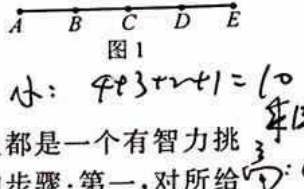 A B C D E
图1
小: 4+3+2+1=10
都是一个有智力挑
步骤.第一,对所给